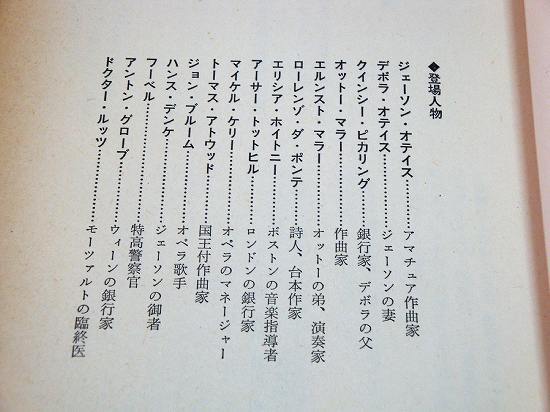 ◆登場人物
ジェーソン・オテイス…………アマチュア作曲家
デボラ・オテイス…………ジェーソンの妻
クインシー・ピカリング…………銀行家、デボラの父
オットー・マラー…………作曲家
エルンスト・マラー…………オットーの弟、演奏家
ローレンゾ・ダ・ポンテ…………詩人、台本作家
エリシア・ホイトニー…………ボストンの音楽指導者
アーサー・トットヒル…………ロンドンの銀行家
マイケル・ケリー…………オペラのマネージャー
トーマス・アトウッド…………国王付作曲家
ジョン・ブルーム…………オペラ歌手
ハンス・デンケ…………ジェーソンの御者
フーベル…………特高警察官
アントン・グローブ…………ウィーンの銀行家
ドクター・ルッツ…………モーツァルトの臨終医